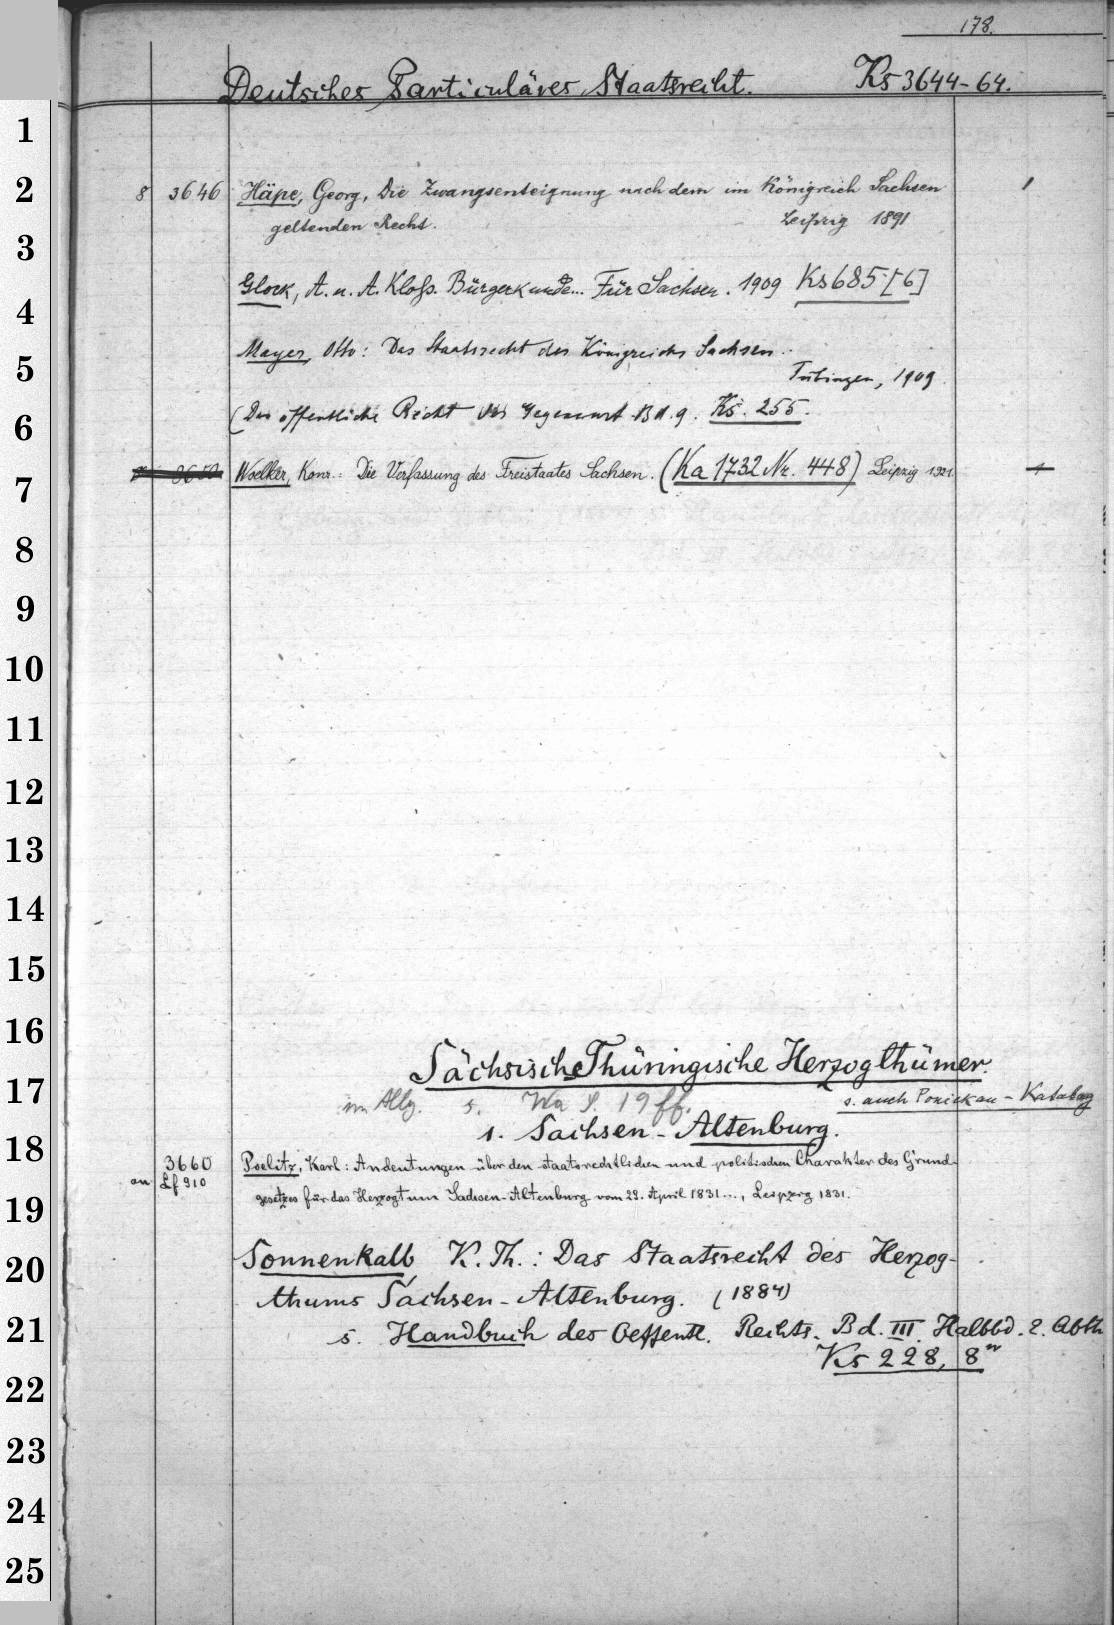 178.
Deutsches Particuläres Staatsrecht. Ks 3644-64.
1
2
3
4
5
6
7
8
9
10
11
12
13
14
15
16
17
18
19
20
21
22
23
24
25
8 3646 Häpe, Georg, Die Zwangsenteignung nach dem im Königreich Sachsen 1
geltenden Recht. Leipzig 1891
Glock, A. u. A. Kloß. Bürgerkunde... Für Sachsen. 1909 Ks 685 [6]
Mayer, Otto: Das Staatsrecht des Königreichs Sachsen.
Tübingen, 1909.
(Das öffentliche Recht der Gegenwart Bd. 9. Ks. 255.
3650 Woelker, Konr.: Die Verfassung des Freistaates Sachsen. (Ka 1732 Nr. 448) Leipzig 1921. 1
Sächsische Thüringische Herzogthümer.
im Allg. s. Wa S. 19 ff. s. auch Ponickau-Katalog
1. Sachsen-Altenburg.
3660 Poelitz, Karl: Andeutungen über den staatsrechtlichen und politischen Charakter des Grund-
an Lf 910 gesetzes für das Herzogtum Sachsen-Altenburg vom 29. April 1831..., Leipzig 1831.
Sonnenkalb K. Th.: Das Staatsrecht des Herzog-
thums Sachsen-Altenburg. (1884)
s. Handbuch des Oeffentl. Rechts. Bd. III. Halbbd. 2. Abth
Ks 228, 8"